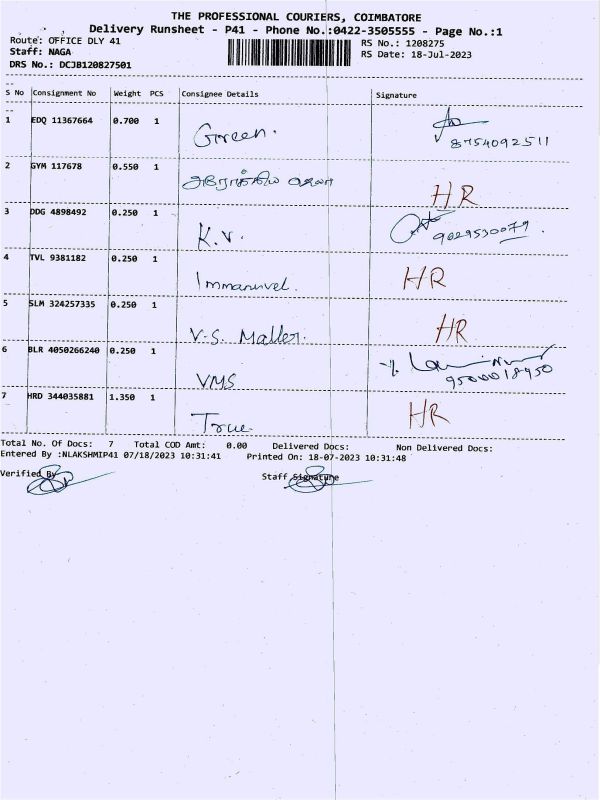 THE PROFESSIONAL COURIERS, COIMBATORE
Delivery Runsheet - P41 - Phone No.:0422-3505555 - Page No.:1
Route: OFFICE DLY 41
RS No.: 1208275
Staff: NAGA
RS Date: 18-Jul-2023
DRS No.: DCJB120827501
S No Consignment No Weight PCS Consignee Details Signature
1 EDQ 11367664 0.700 1 Green.
8754092511
2 GYM 117678 0.550 1
HR
3 DDG 4898492 0.250 1 K.V.
9029530079.
4 TVL 9381182 0.250 1 Immanuvel. HR
5 SLM 324257335 0.250 1 V.S. Maller. HR
6 BLR 4050266240 0.250 1 VMS
9500018950
7 HRD 344035881 1.350 1 True HR
Total No. Of Docs: 7 Total COD Amt: 0.00 Delivered Docs: Non Delivered Docs:
Entered By :NLAKSHMIP41 07/18/2023 10:31:41 Printed On: 18-07-2023 10:31:48
Verified By
Staff Signature